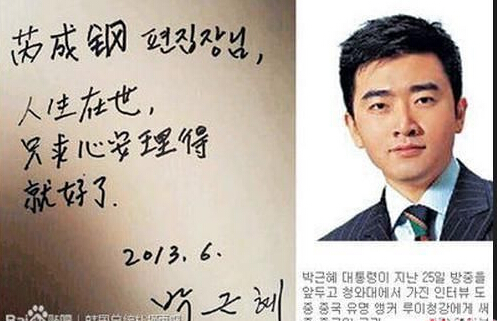 芮成钢 편집장님,
人生在世,
只求心安理得
就好了.
2013.6.
박근혜
Bai 贴吧
박근혜 대통령이 지난 25일 방중을
앞두고 청와대에서 가진 인터뷰 도
중 중국 유명 앵커 루이청강에게 써